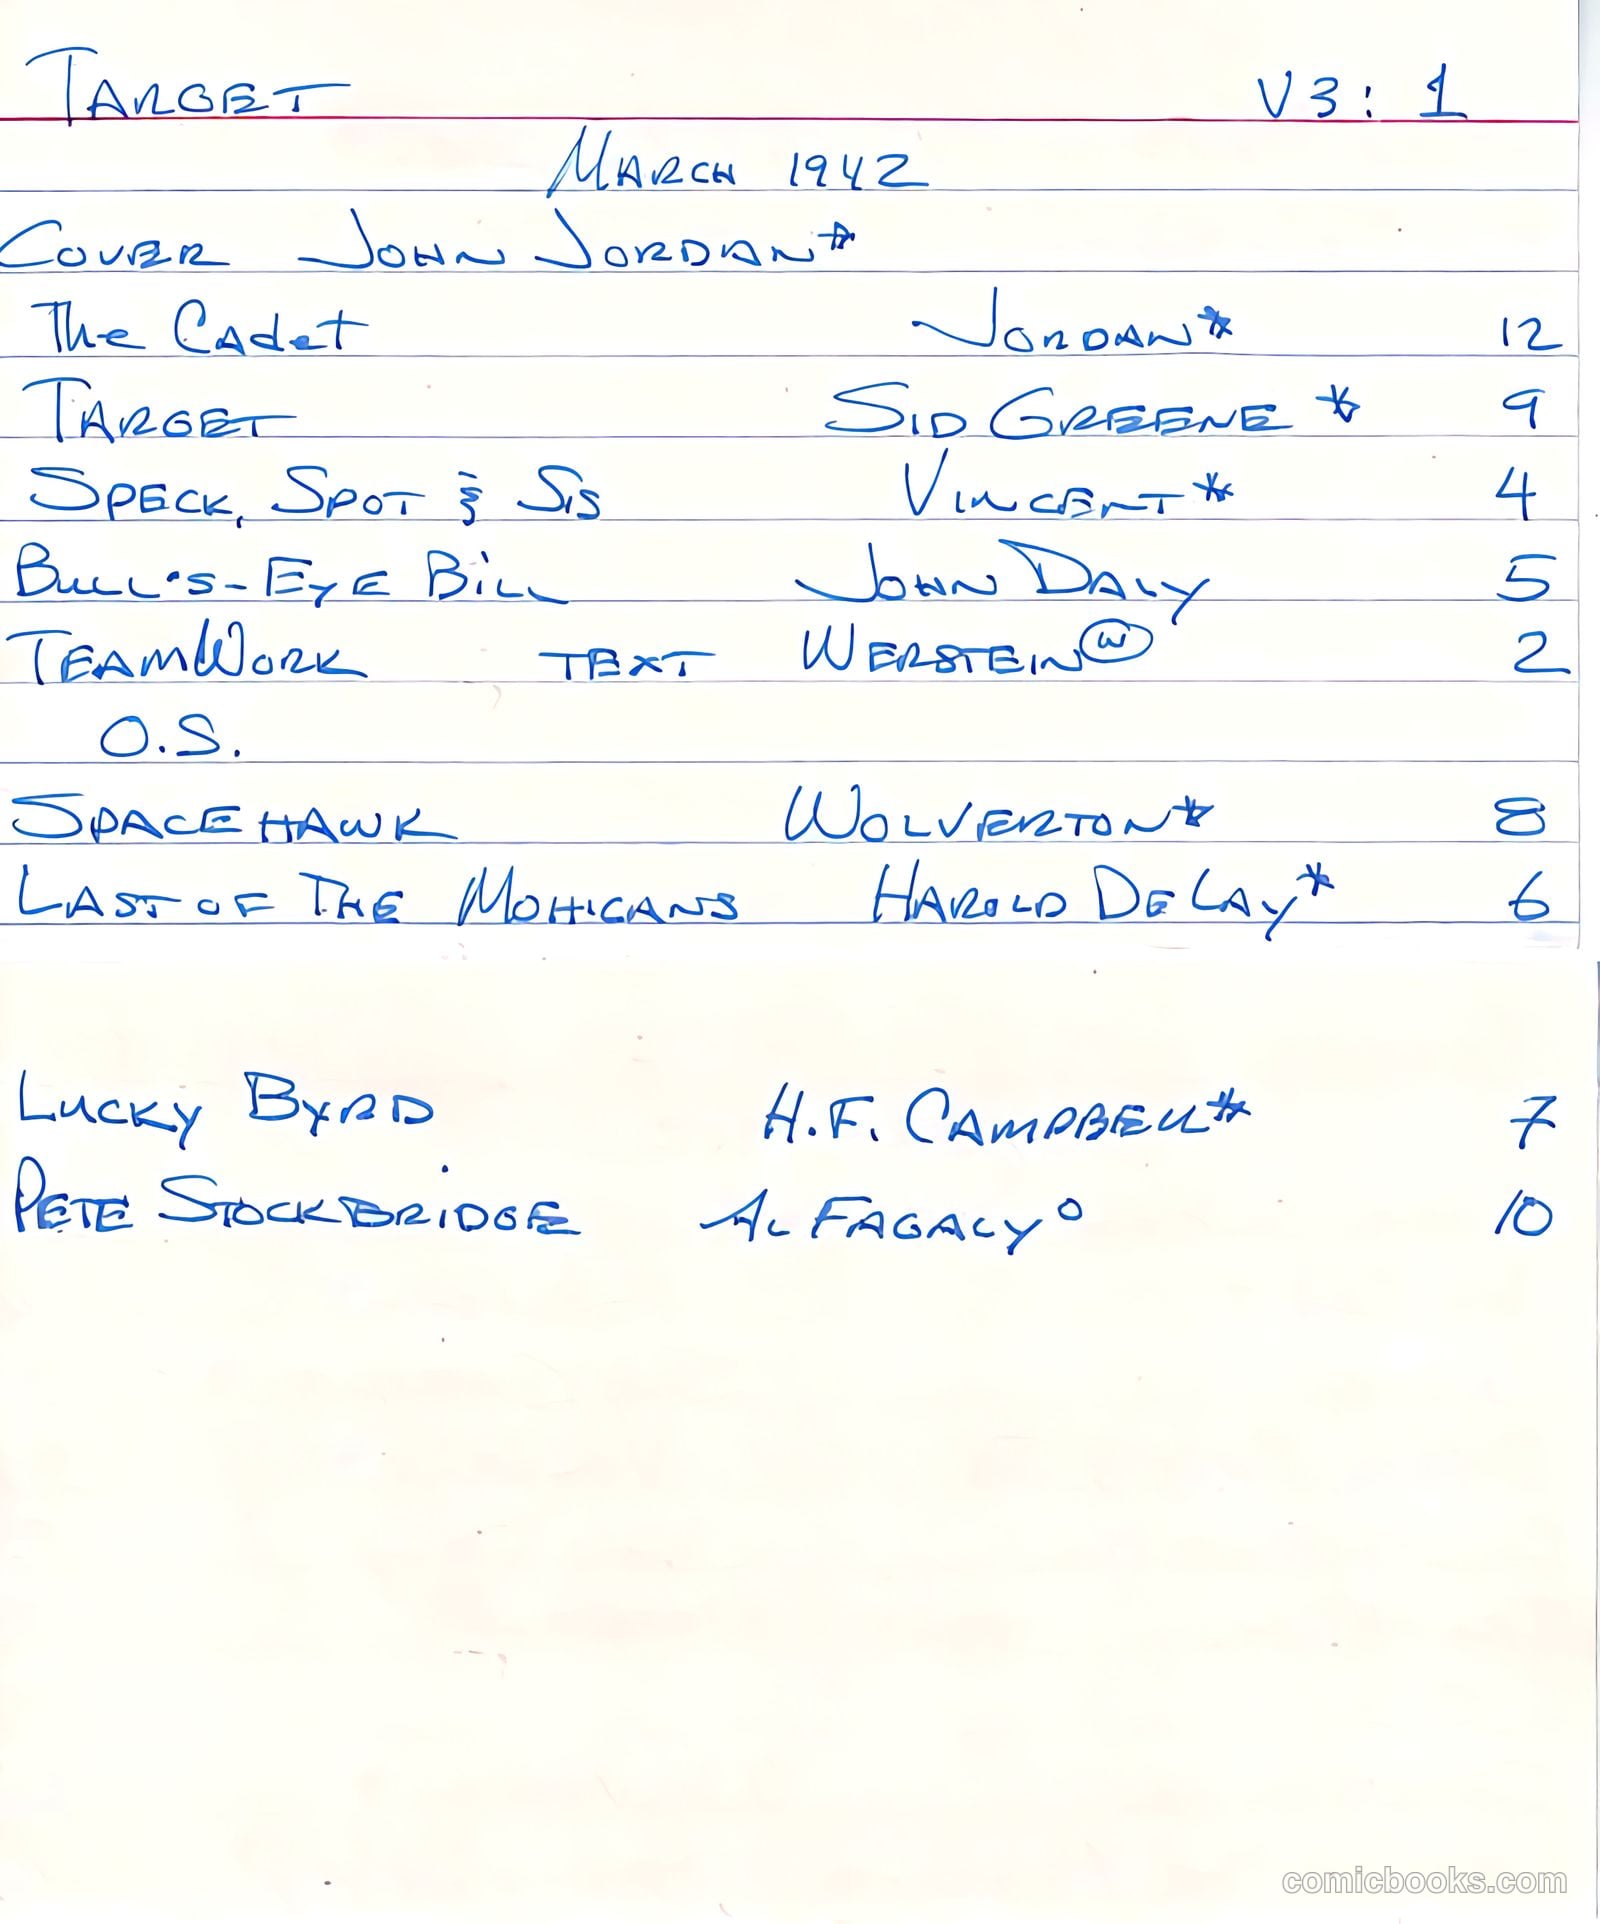 TARGET V3: 1
MARCH 1942
COVER JOHN JORDAN*
The Cadet JORDAN* 12
TARGET SID GREENE * 9
SPECK, SPOT & SIS VINCENT* 4
BULL'S-EYE BILL JOHN DALY 5
TEAMWORK TEXT WERSTEIN (W) 2
O.S.
SPACEHAWK WOLVERTON* 8
LAST OF THE MOHICANS HAROLD DELAY* 6
LUCKY BYRD H.F. CAMPBELL* 7
PETE STOCKBRIDGE AL FAGALY° 10
comicbooks.com